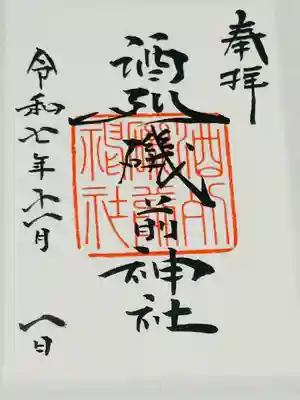 奉拝
酒列磯前神社
令和七年十一月 八日
酒列磯前神社